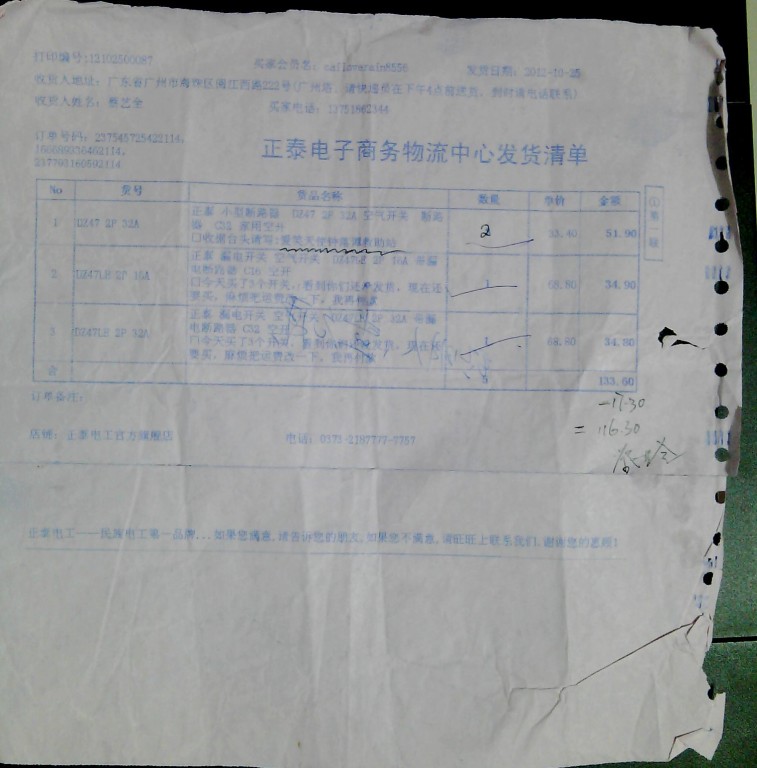 打印编号:12102500087 买家会员名: 发货日期: 2012-10-25
收货人地址: 广东省广州市海珠区阅江西路222号(广州塔, 请快递员在下午4点前送货, 到时请电话联系)
收货人姓名: 蔡艺全 买家电话: 13751862344
订单号码: 237545725421114,
166669336402114,
237793160592114
正泰电子商务物流中心发货清单
No 货号 货品名称 数量 单价 金额
1 DZ47 2P 32A 正泰 小型断路器 DZ47 2P 32A 空气开关 断路器 C32 家用空开 2 33.40 51.90
口收据台头请写:
2 DZ47LE 2P 16A 正泰 漏电开关 空气开关 DZ47LE 2P 16A 带漏电断路器 C16 空开 1 68.80 34.90
口今天买了3个开关, 看到你们还没发货, 现在还要买, 麻烦把运费改一下, 我再付款
3 DZ47LE 2P 32A 正泰 漏电开关 空气开关 DZ47LE 2P 32A 带漏电断路器 C32 空开 1 68.80 34.80
口今天买了3个开关, 看到你们还没发货, 现在还要买, 麻烦把运费改一下, 我再付款
合 5 133.60
①第一联
订单备注:
-17.30
= 116.30
店铺: 正泰电工官方旗舰店 电话: 0373-2187777-7757
正泰电工——民族电工第一品牌...如果您满意,请告诉您的朋友,如果您不满意,请旺旺上联系我们,谢谢您的惠顾!